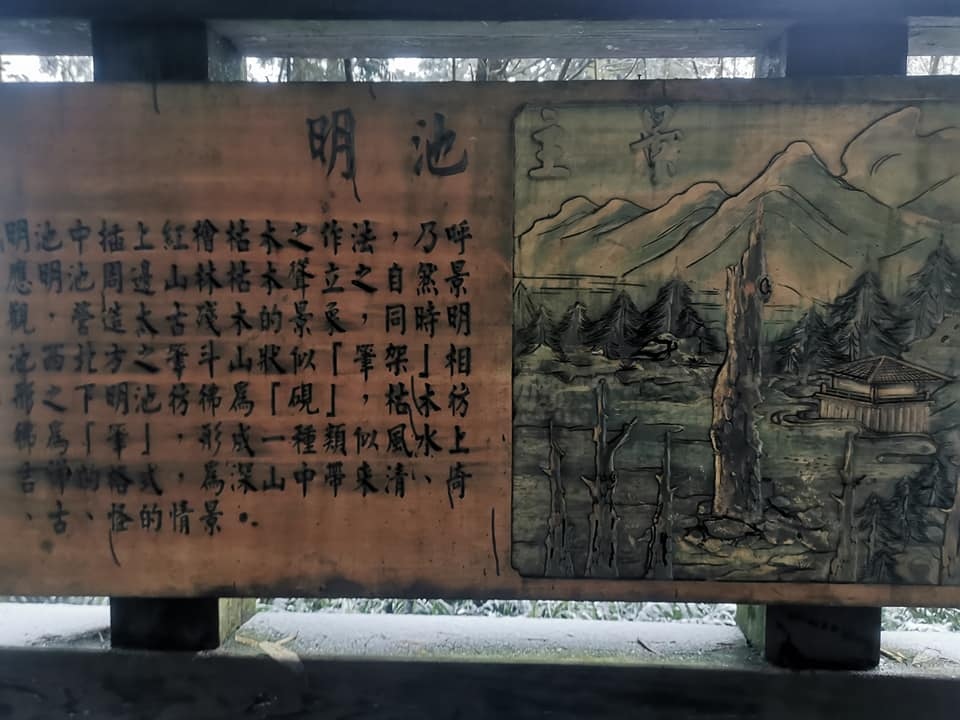 明池
主景
明池中插上紅檜枯木之作法，乃呼
應明池周邊山林枯木聳立之自然景
觀，營造太古殘木的景象，同時明
池西北方之筆斗山狀似「筆架」相
之下明池彷彿為「硯」，枯木彷
彿為「筆」，形成一種類似風水上
的格式，為深山中帶來清、奇
、古、怪的情景。